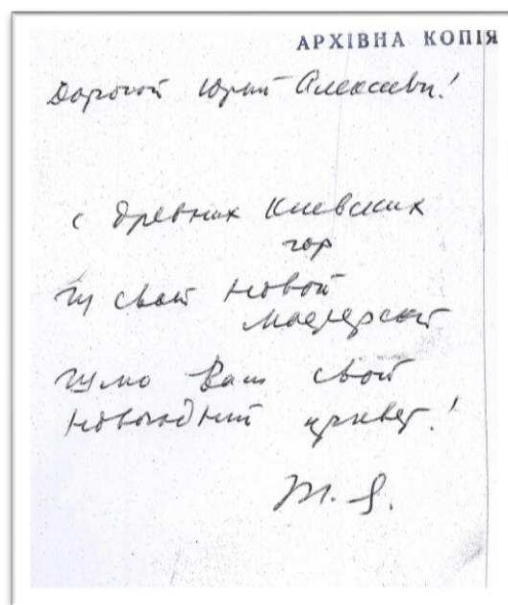 АРХІВНА КОПІЯ
Дорогой Юрий Алексеевич!
с древних Киевских
гор
из своей новой
мастерской
шлю Вам свой
новогодний привет!
Т. Я.